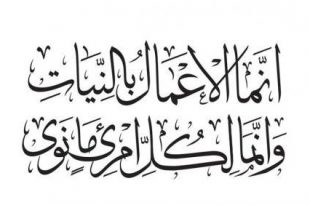 انَّمَا الاَعْمَالُ بِالنِّيَاتِ
وَانَّمَا لِكُلِّ امْرِئٍ مَانَوَى